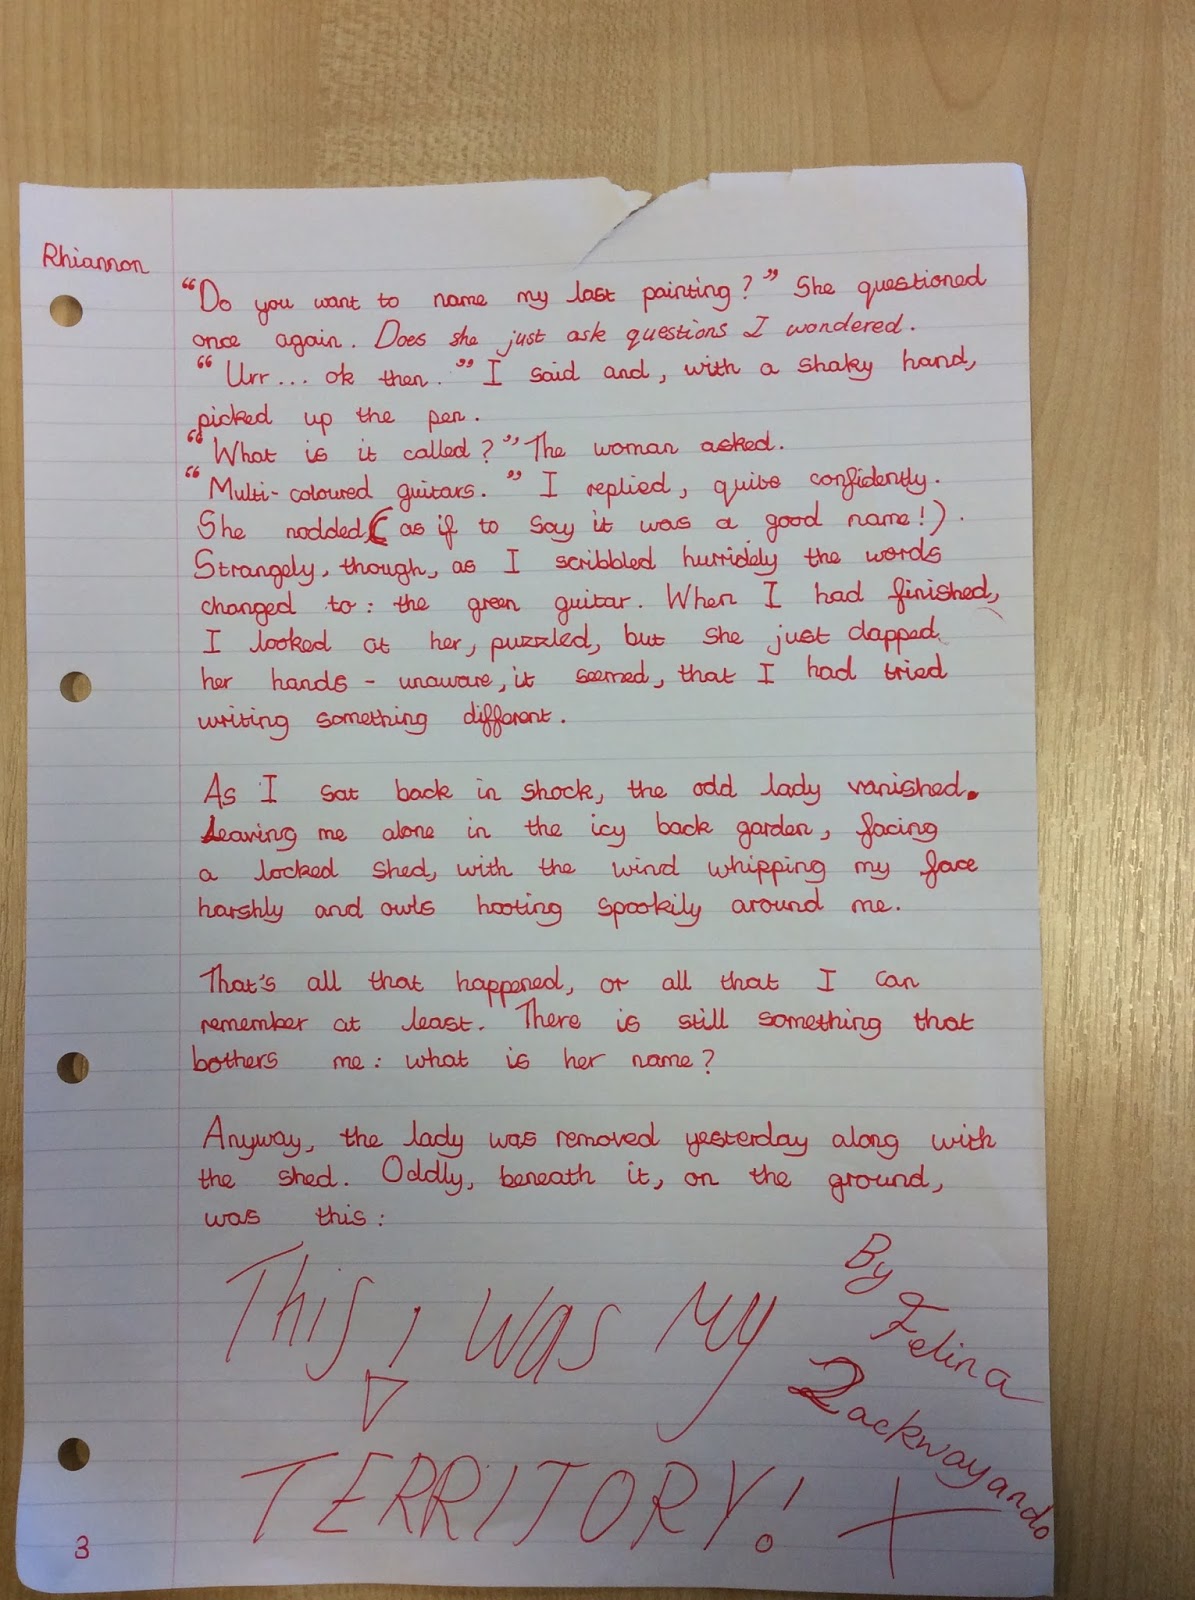 Rhiannon
“Do you want to name my last painting?” She questioned
once again. Does she just ask questions I wondered.
“Urr... ok then.” I said and, with a shaky hand,
picked up the pen.
“What is it called?” The woman asked.
“Multi-coloured guitars.” I replied, quite confidently.
She nodded (as if to say it was a good name!).
Strangely, though, as I scribbled hurridely the words
changed to: the green guitar. When I had finished,
I looked at her, puzzled, but she just clapped
her hands - unaware, it seemed, that I had tried
writing something different.
As I sat back in shock, the odd lady vanished.
Leaving me alone in the icy back garden, facing
a locked shed, with the wind whipping my face
harshly and owls hooting spookily around me.
That's all that happened, or all that I can
remember at least. There is still something that
bothers me: what is her name?
Anyway, the lady was removed yesterday along with
the shed. Oddly, beneath it, on the ground,
was this:
This, was My
TERRITORY!
By
Felina
Zackwayando
X
3